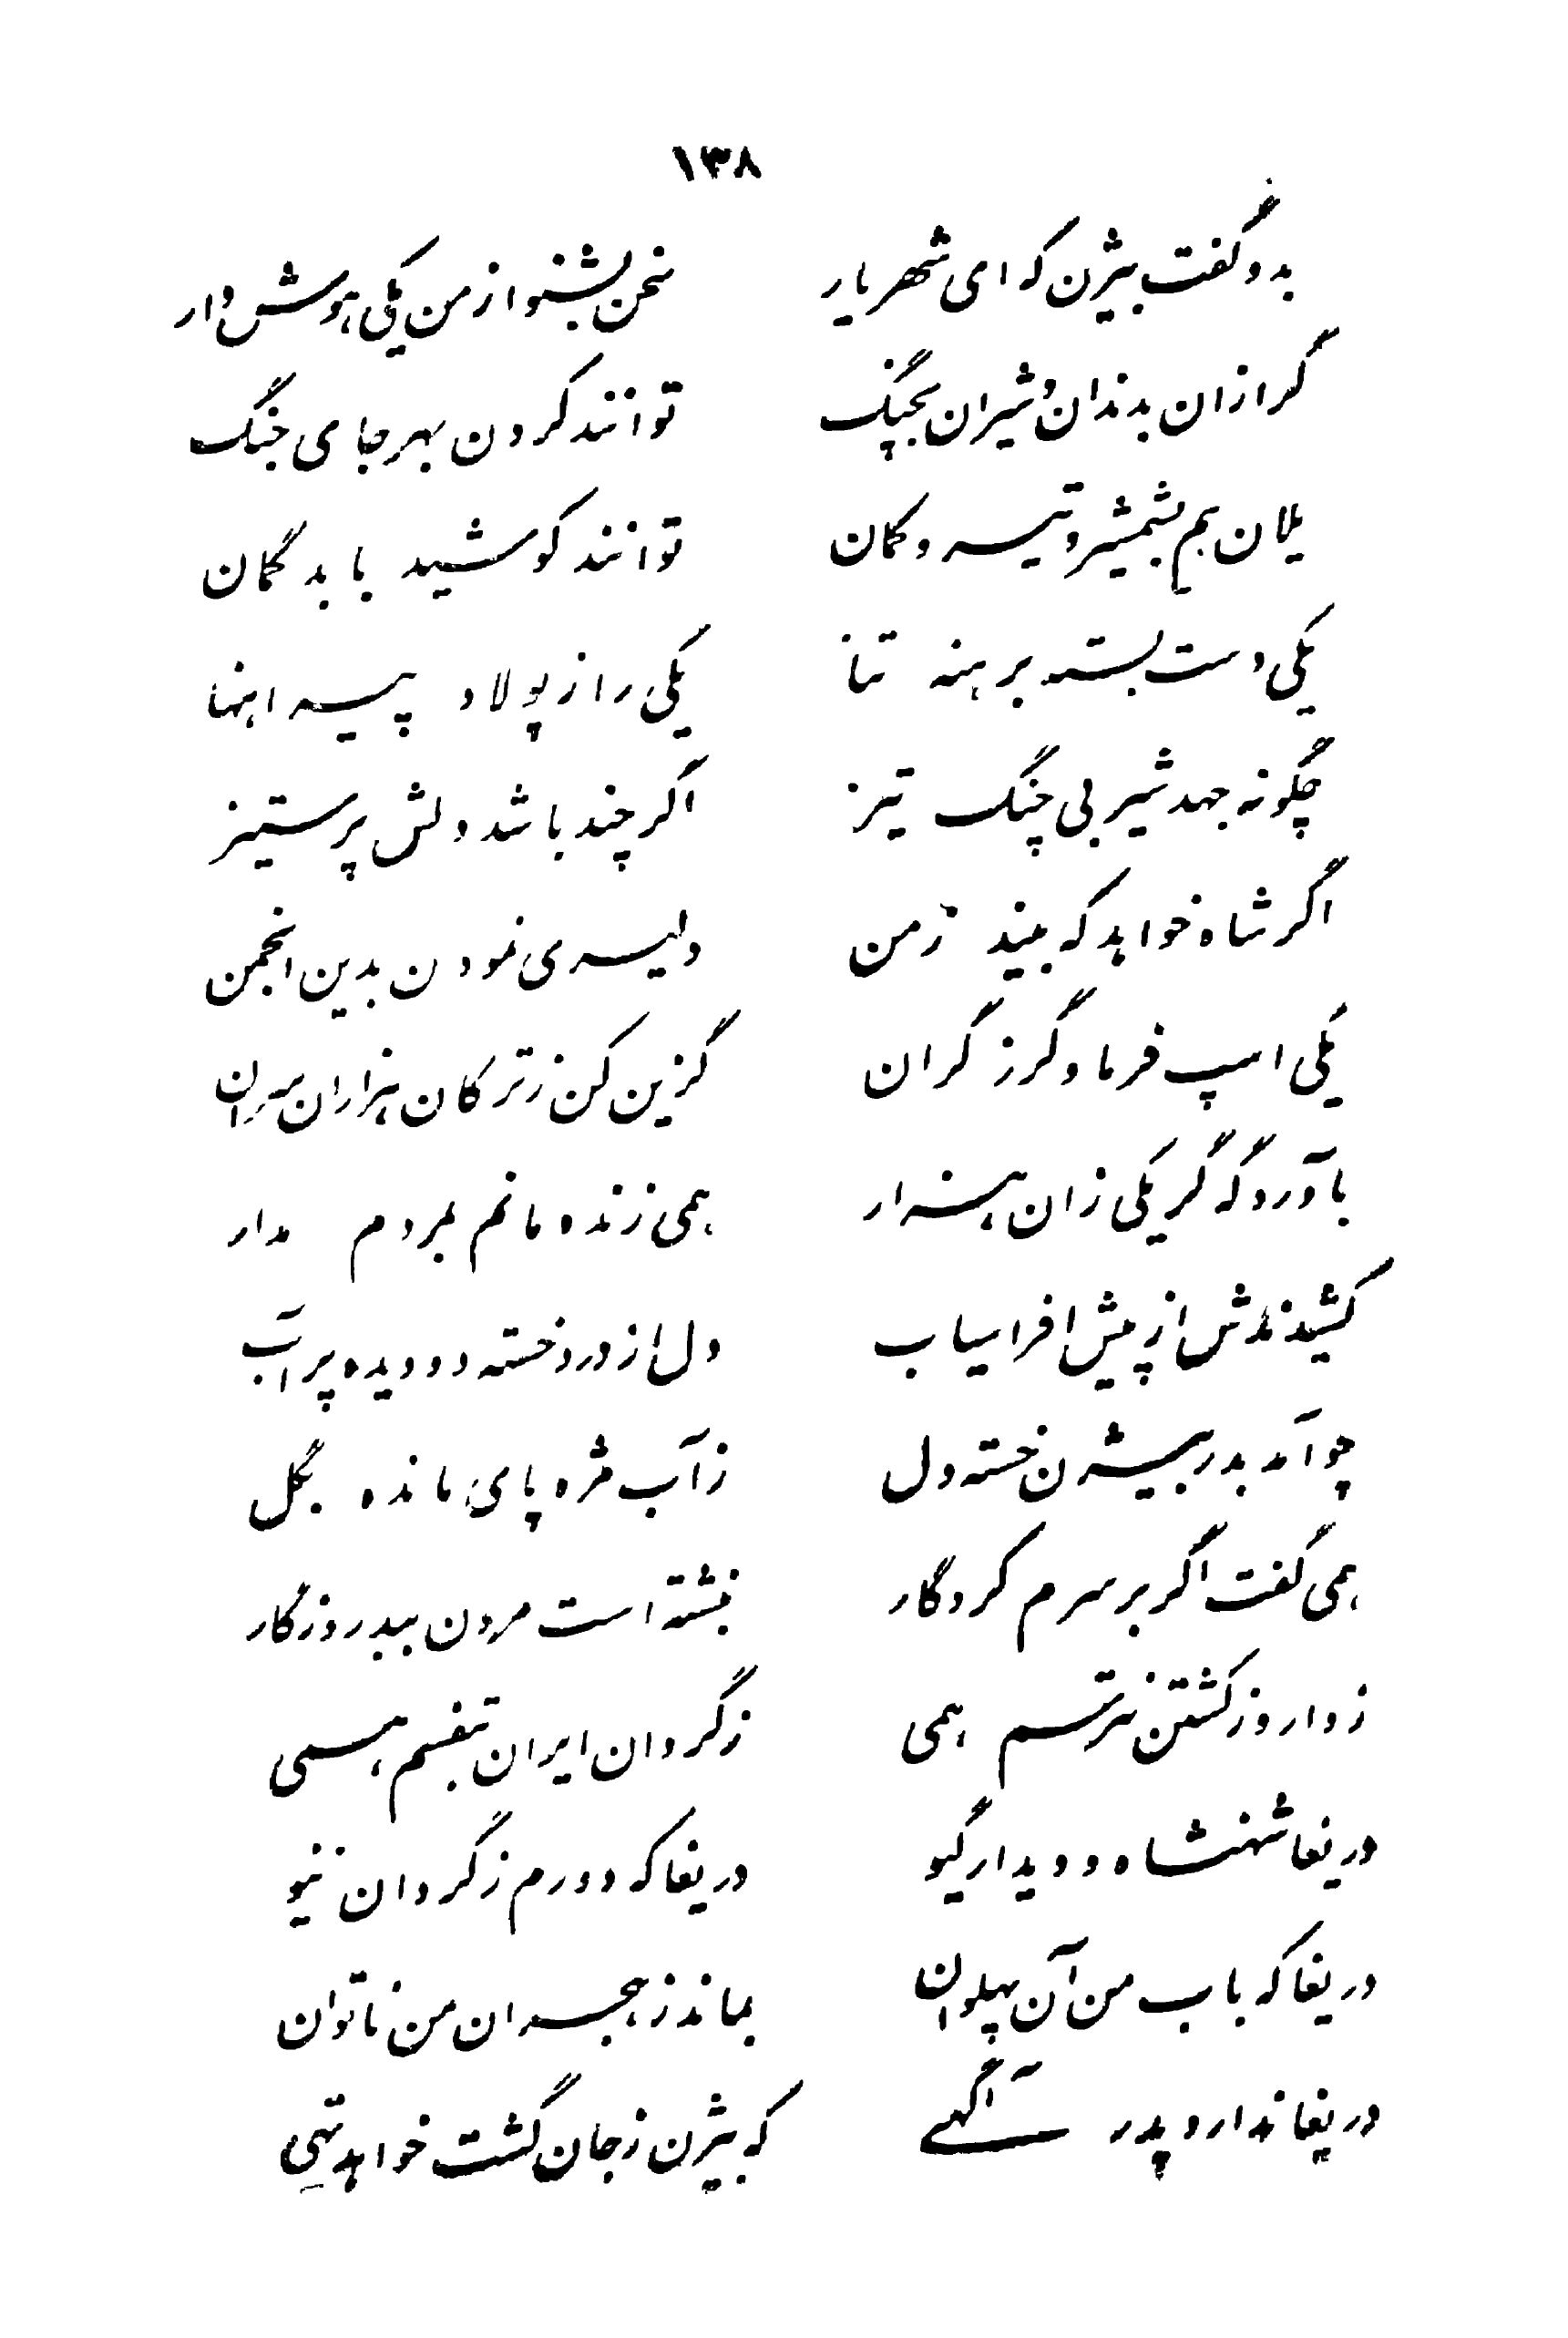 ۱۳۸
بدو گفت بیژن که ای شهریار سخن بشنو از من یکی هوش دار
گرازان بدندان و شیران بچنگ توانند کردن بهر جای جنگ
یلان هم بشمشیر و تیر و کمان توانند کوشید با بد گمان
یکی دست بسته برهنه تنا یکی را ز پولاد پیراهنا
چگونه جهد شیر بی چنگ تیز اگر چند باشد دلش پر ستیز
اگر شاه خواهد که بیند ز من دلیری نمودن بدین انجمن
یکی اسپ فرما و گرز گران گزین کن ز ترکان هزاران سران
بآوردگه گر یکی زان هزار همی زنده مانم بمردم مدار
کشیدندش از پیش افراسیاب دل از درد خسته دو دیده پر آب
چو آمد بدر بیژن خسته دل ز آب مژه پای مانده بگل
همی گفت اگر بر سرم کردگار نبشته است مردن ببد روزگار
ز دار و ز کشتن نترسم همی ز گردان ایران بتفسم همی
دریغا شهنشاه و دیدار گیو دریغا که دورم ز گردان نیو
دریغا که باب من آن پهلوان بماند ز هجران من ناتوان
دریغا ندارد پدر آگهی که بیژن ز جان گشت خواهد تهی